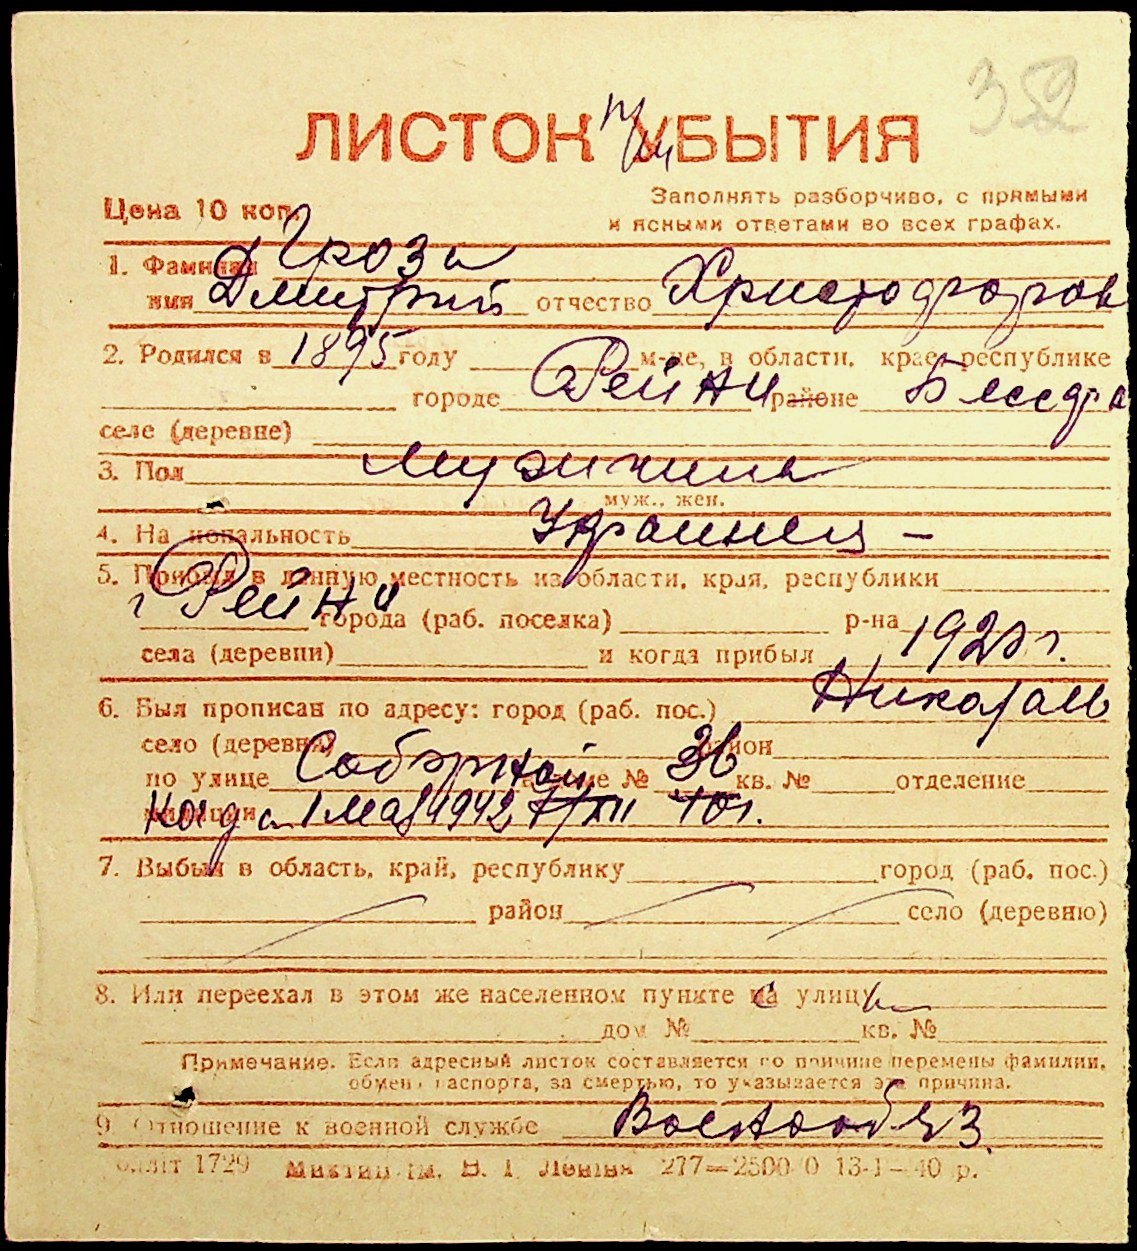 352
ЛИСТОК УБЫТИЯ
Цена 10 коп.
Заполнять разборчиво, с прямыми
и ясными ответами во всех графах.
1. Фамилия Грозы
имя Дмитрий отчество Христофоров
2. Родился в 1895 году м-це, в области, крае, республике
городе Рейни районе Бессара
селе (деревне)
3. Пол мужчина
муж., жен.
4. Национальность Украинец –
5. Прибыл в данную местность из области, края, республики
г Рейни города (раб. поселка) р-на
села (деревни) и когда прибыл 1920 г.
6. Был прописан по адресу: город (раб. пос.) Николаев
село (деревня) район
по улице Соборной № 36 кв. № отделение
милиции когда 1 мая 1942
7. Выбыл в область, край, республику город (раб. пос.)
район село (деревню)
8. Или переехал в этом же населенном пункте на улицу
дом № кв. №
Примечание. Если адресный листок составляется по причине перемены фамилии,
обмена паспорта, за смертью, то указывается эта причина.
9. Отношение к военной службе Военнообяз.
1729 ім. В. І. Леніна 277—2500 0 13-I—40 р.